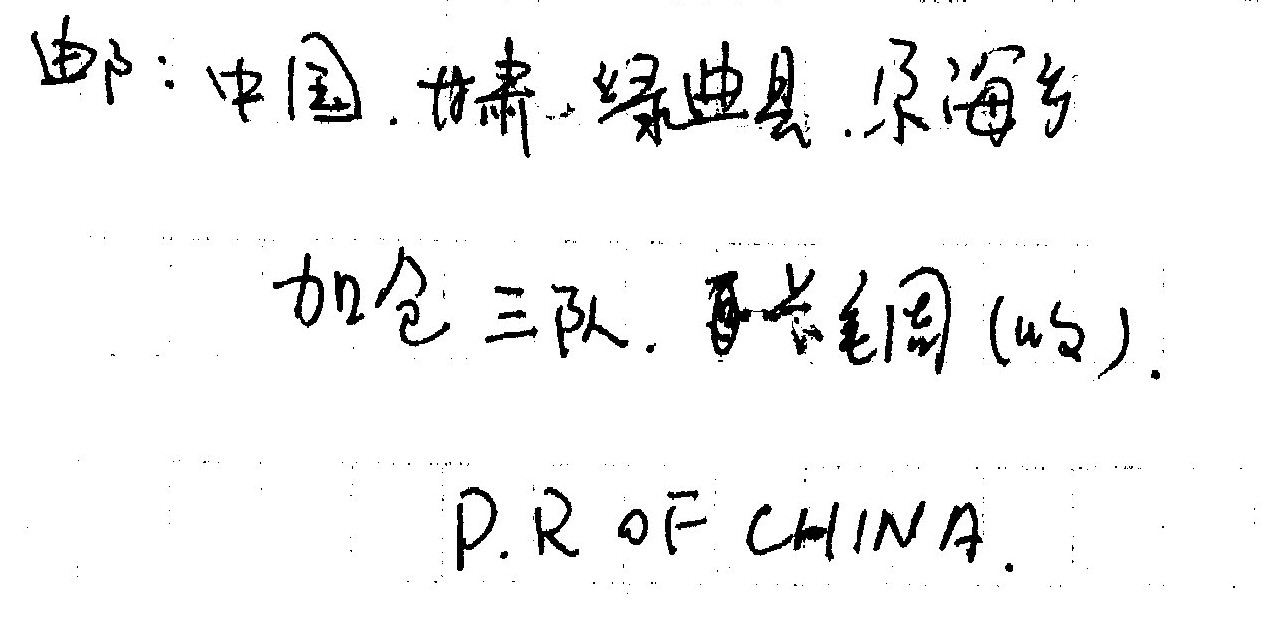 邮:中国.甘肃.绿曲县.尕海乡
加仓三队.卡毛周(收).
P.R OF CHINA.